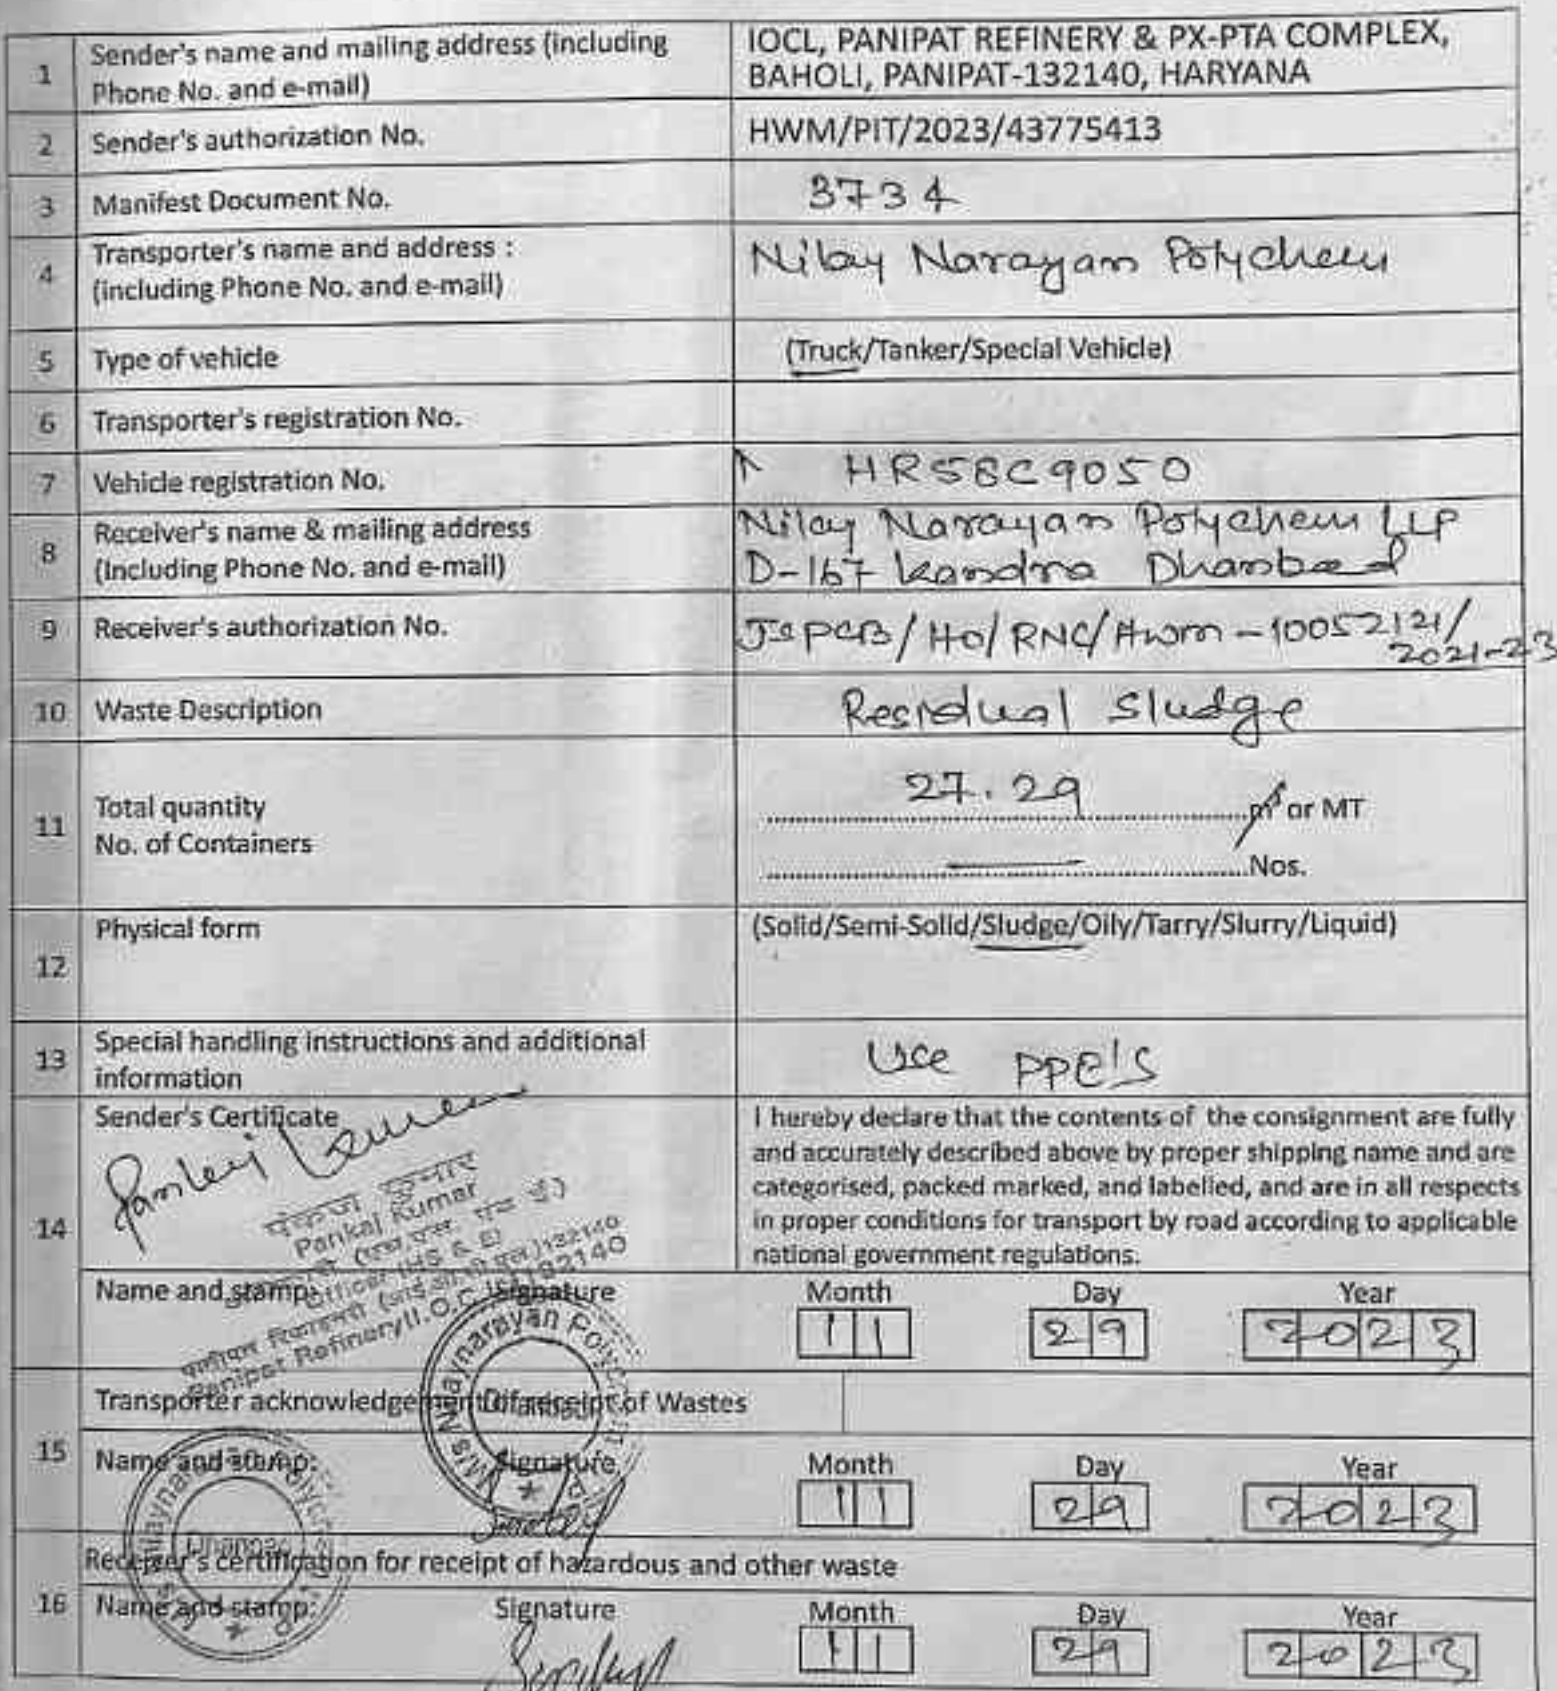 1 Sender's name and mailing address (including Phone No. and e-mail)
IOCL, PANIPAT REFINERY & PX-PTA COMPLEX,
BAHOLI, PANIPAT-132140, HARYANA
2 Sender's authorization No.
HWM/PIT/2023/43775413
3 Manifest Document No.
3734
4 Transporter's name and address :
(including Phone No. and e-mail)
Nilay Narayan Polychem
5 Type of vehicle
(Truck/Tanker/Special Vehicle)
6 Transporter's registration No.
7 Vehicle registration No.
HR58C9050
8 Receiver's name & mailing address
(Including Phone No. and e-mail)
Nilay Narayan Polychem LLP
D-167 Kandra Dhanbad
9 Receiver's authorization No.
/HO/RNC/HWM-10052121/
2021-23
10 Waste Description
Residual Sludge
11 Total quantity
No. of Containers
27.29 or MT
Nos.
12 Physical form
(Solid/Semi-Solid/Sludge/Oily/Tarry/Slurry/Liquid)
13 Special handling instructions and additional
information
Use PPE's
14 Sender's Certificate
I hereby declare that the contents of the consignment are fully
and accurately described above by proper shipping name and are
categorised, packed marked, and labelled, and are in all respects
in proper conditions for transport by road according to applicable
national government regulations.
पंकज कुमार
Pankaj Kumar
Officer (HS & E)
Panipat Refinery
Name and stamp: Signature
Month Day Year
11 29 2023
15 Transporter acknowledgement of receipt of Wastes
Name and stamp: Signature
Month Day Year
11 29 2023
Dhanbad
16 Receiver's certification for receipt of hazardous and other waste
Name and stamp: Signature
Month Day Year
11 29 2023
Dhanbad